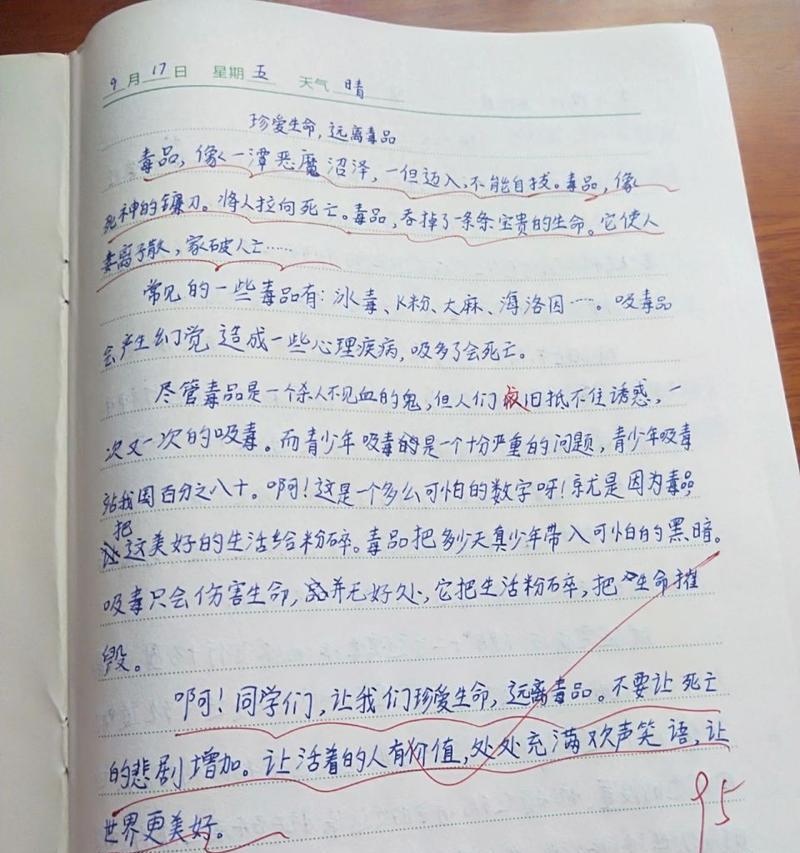 9月17日 星期五 天气晴
珍爱生命，远离毒品
毒品，像一潭恶魔沼泽，一但迈入，不能自拔。毒品，像
死神的镰刀。将人拉向死亡。毒品，吞掉了一条条宝贵的生命。它使人
妻离子散，家破人亡……
常见的一些毒品有：冰毒、K粉、大麻、海洛因……。吸毒品
会产生幻觉 造成一些心理疾病，吸多了会死亡。
尽管毒品是一个杀人不见血的鬼，但人们依旧抵不住诱惑，一
次又一次的吸毒。而青少年吸毒的是一个十分严重的问题，青少年吸毒
占我国百分之八十。啊！这是一个多么可怕的数字呀！就是因为毒品
把这美好的生活给粉碎。毒品把多少天真少年带入可怕的黑暗。
吸毒只会伤害生命，并无好处，它把生活粉碎，把生命摧
毁。
啊！同学们，让我们珍爱生命，远离毒品。不要让死亡
的悲剧增加。让活着的人有价值，处处充满欢声笑语，让
世界更美好。
95